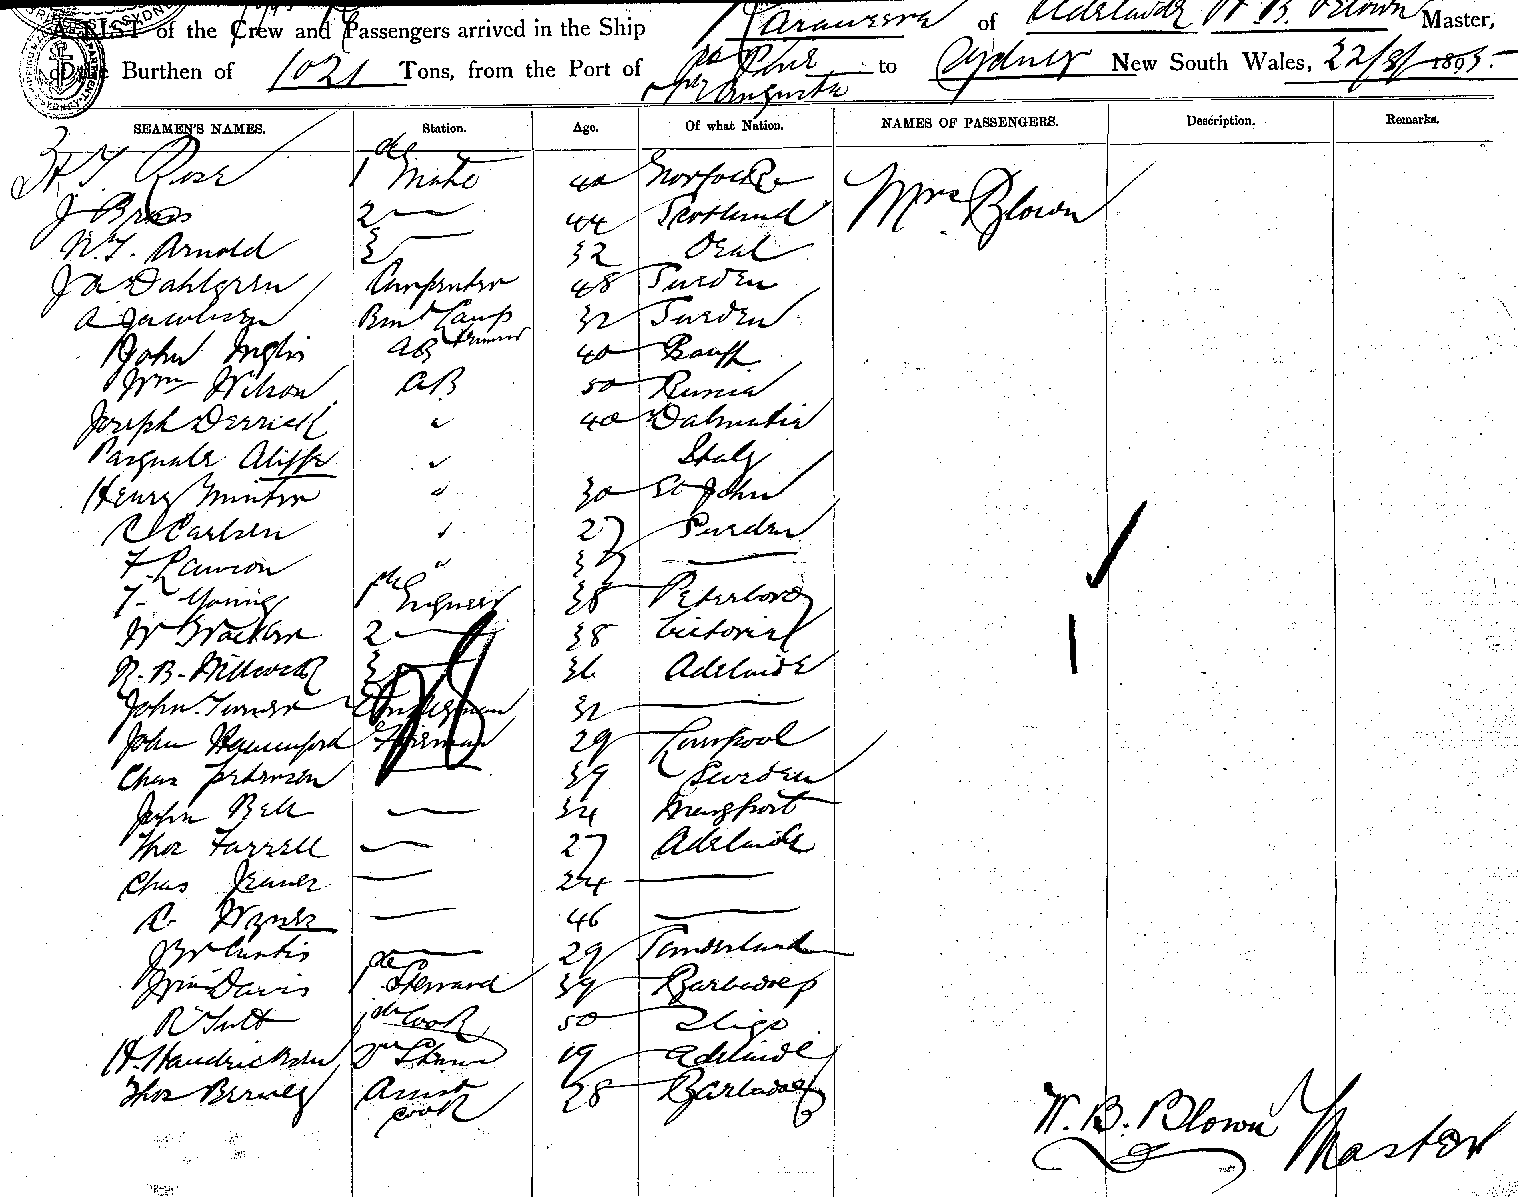 A LIST of the Crew and Passengers arrived in the Ship Karaweera of Adelaide W. B. Blown Master,
of the Burthen of 1021 Tons, from the Port of Pt Pirie to Sydney New South Wales, 22/8/1895
Pt Augusta
SEAMEN'S NAMES. Station. Age. Of what Nation. NAMES OF PASSENGERS. Description. Remarks.
Rose 1 Mate 42 Norfolk Mrs Blown
J 2 44 Scotland
W. T. Arnold 3 32 Deal
J A Dahlgren Carpenter 48 Sweden
A Jacobsen 32 Sweden
John Inglis AB 40 Banff
Wm Wilson AB 50 Russia
Joseph Derrick " 40 Dalmatia
Pasquale " Italy
Henry Minter " 30 St John
C Carlsen " 27 Sweden
F. "
T. Young 1 Engineer 38 Peterboro
W 2 38 Victoria
R. B. 3 36 Adelaide
John Turner 32
John Fireman 29 Liverpool
Chas 39 Sweden
John Bell 34 Maryport
Thos Farrell 27 Adelaide
Chas 24
C. 46
J W Curtis 29 Sunderland
Wm Davis 1 Steward 39 Barbadoes
R Tutt Cook 50 Sligo
H. 2 19 Adelaide
Thos Assist 38 Barbadoes
Cook
W. B. Blown Master